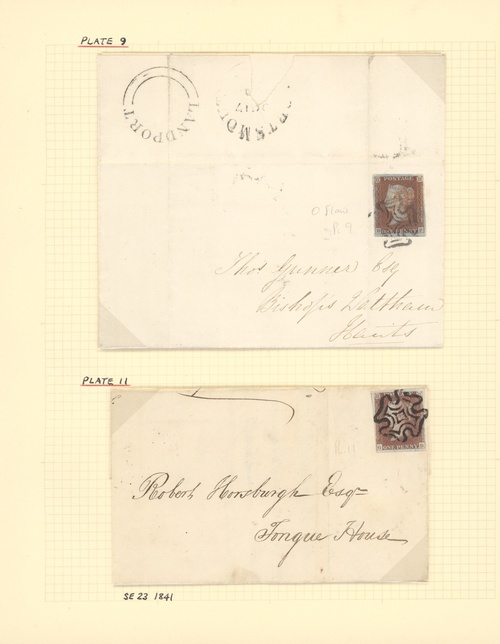 PLATE 9
LANDPORT
POSTAGE
ONE PENNY
Thos Gunner Esq
Bishops Waltham
Hants
PLATE 11
ONE PENNY
Robert Horsburgh Esqre
Tongue House
SE 23 1841